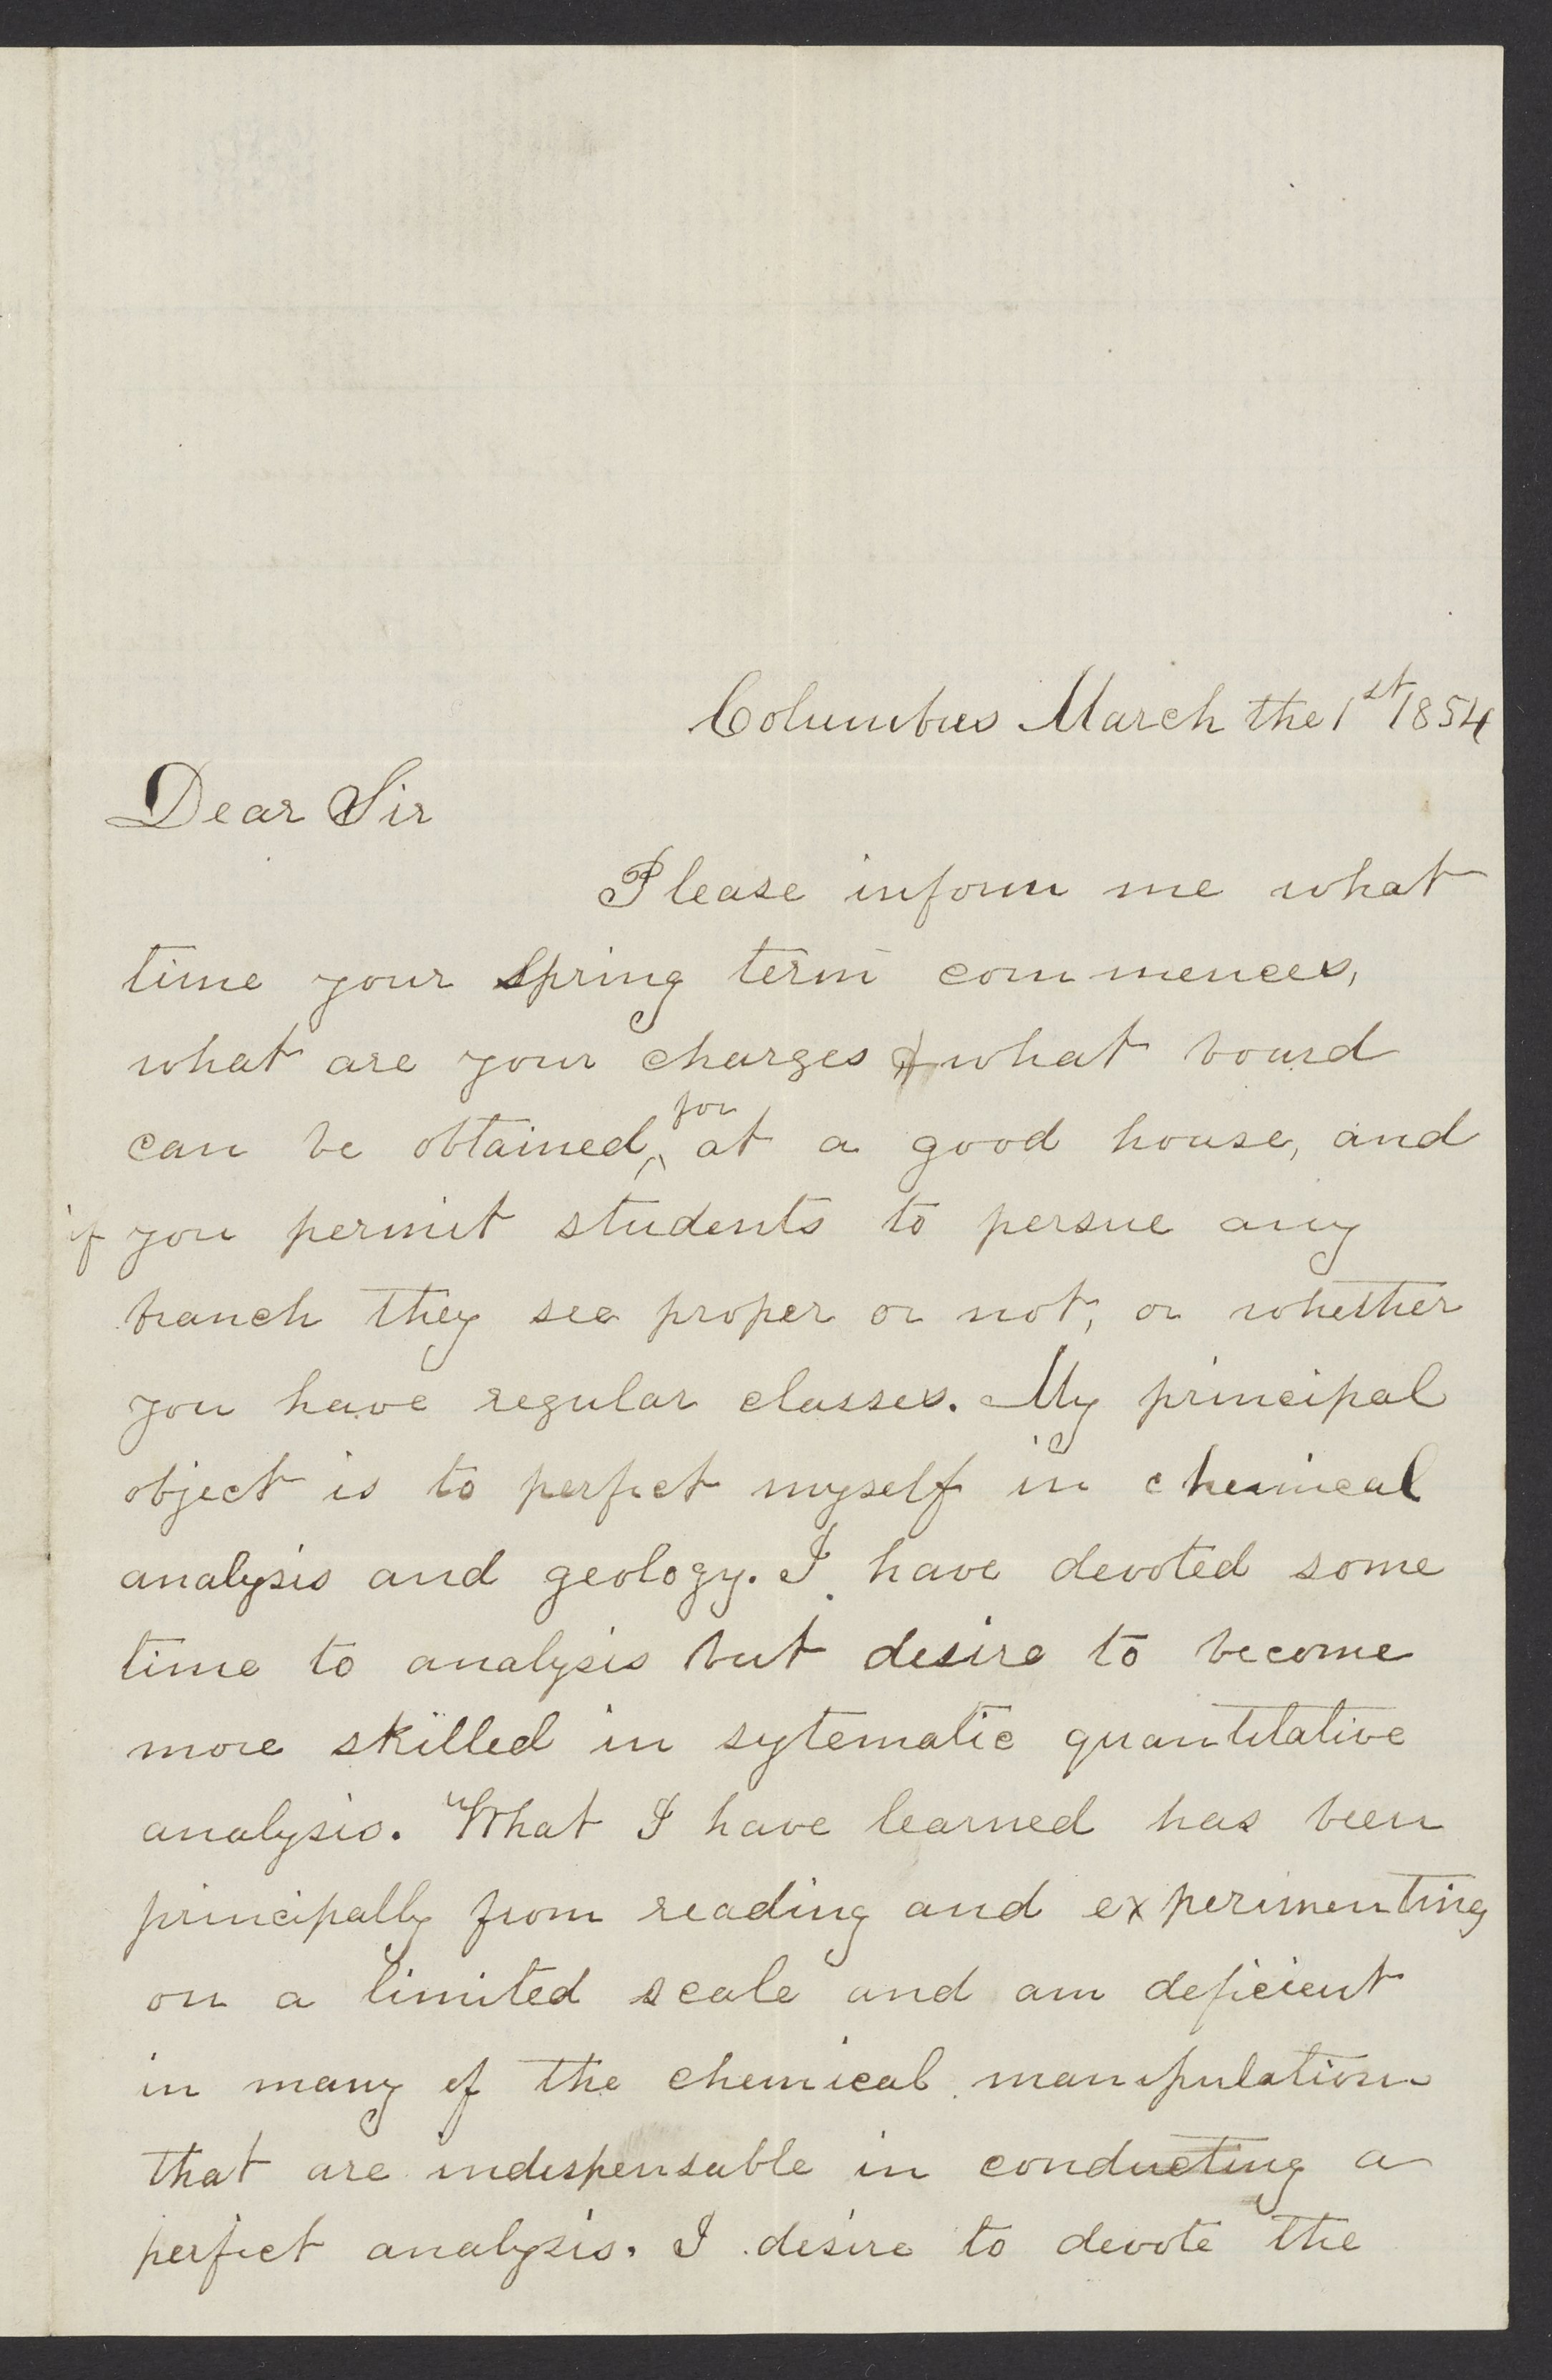 Columbus March the 1st 1854
Dear Sir
Please inform me what
time your Spring term commences,
what are your charges & what board
can be obtained, for at a good house, and
if you permit students to persue any
branch they see proper or not, or whether
you have regular classes. My principal
object is to perfect myself in chemical
analysis and geology. I have devoted some
time to analysis but desire to become
more skilled in sytematic quantitative
analysis. What I have learned has been
principally from reading and experimenting
on a limited scale and am deficient
in many of the chemical manipulations
that are indespensable in conducting a
perfect analysis. I desire to devote the